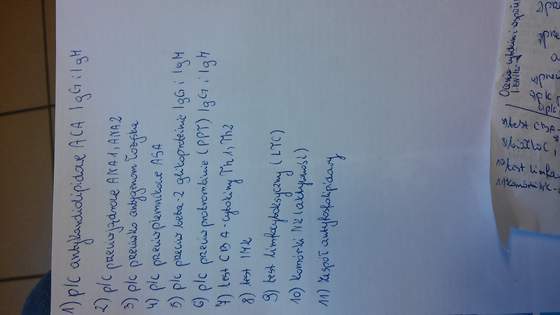 1) p/C antykardiolipidae ACA IgG i IgM
2) p/C przeciwjądrowe ANA1, ANA2
3) p/C przeciwko antygenom łożyska
4) p/C przeciwplemnikowe ASA
5) p/C przeciw beta-2 glikoproteinie IgG i IgM
6) p/C przeciw protrombinie (PPT) IgG i IgM
7) test CBA - cytokiny Th1, Th2
8) test IMK
9) test limfocytotoksyczny (LTC)
10) komórki NK (aktywność)
11) Zespół antyfosfolipidowy